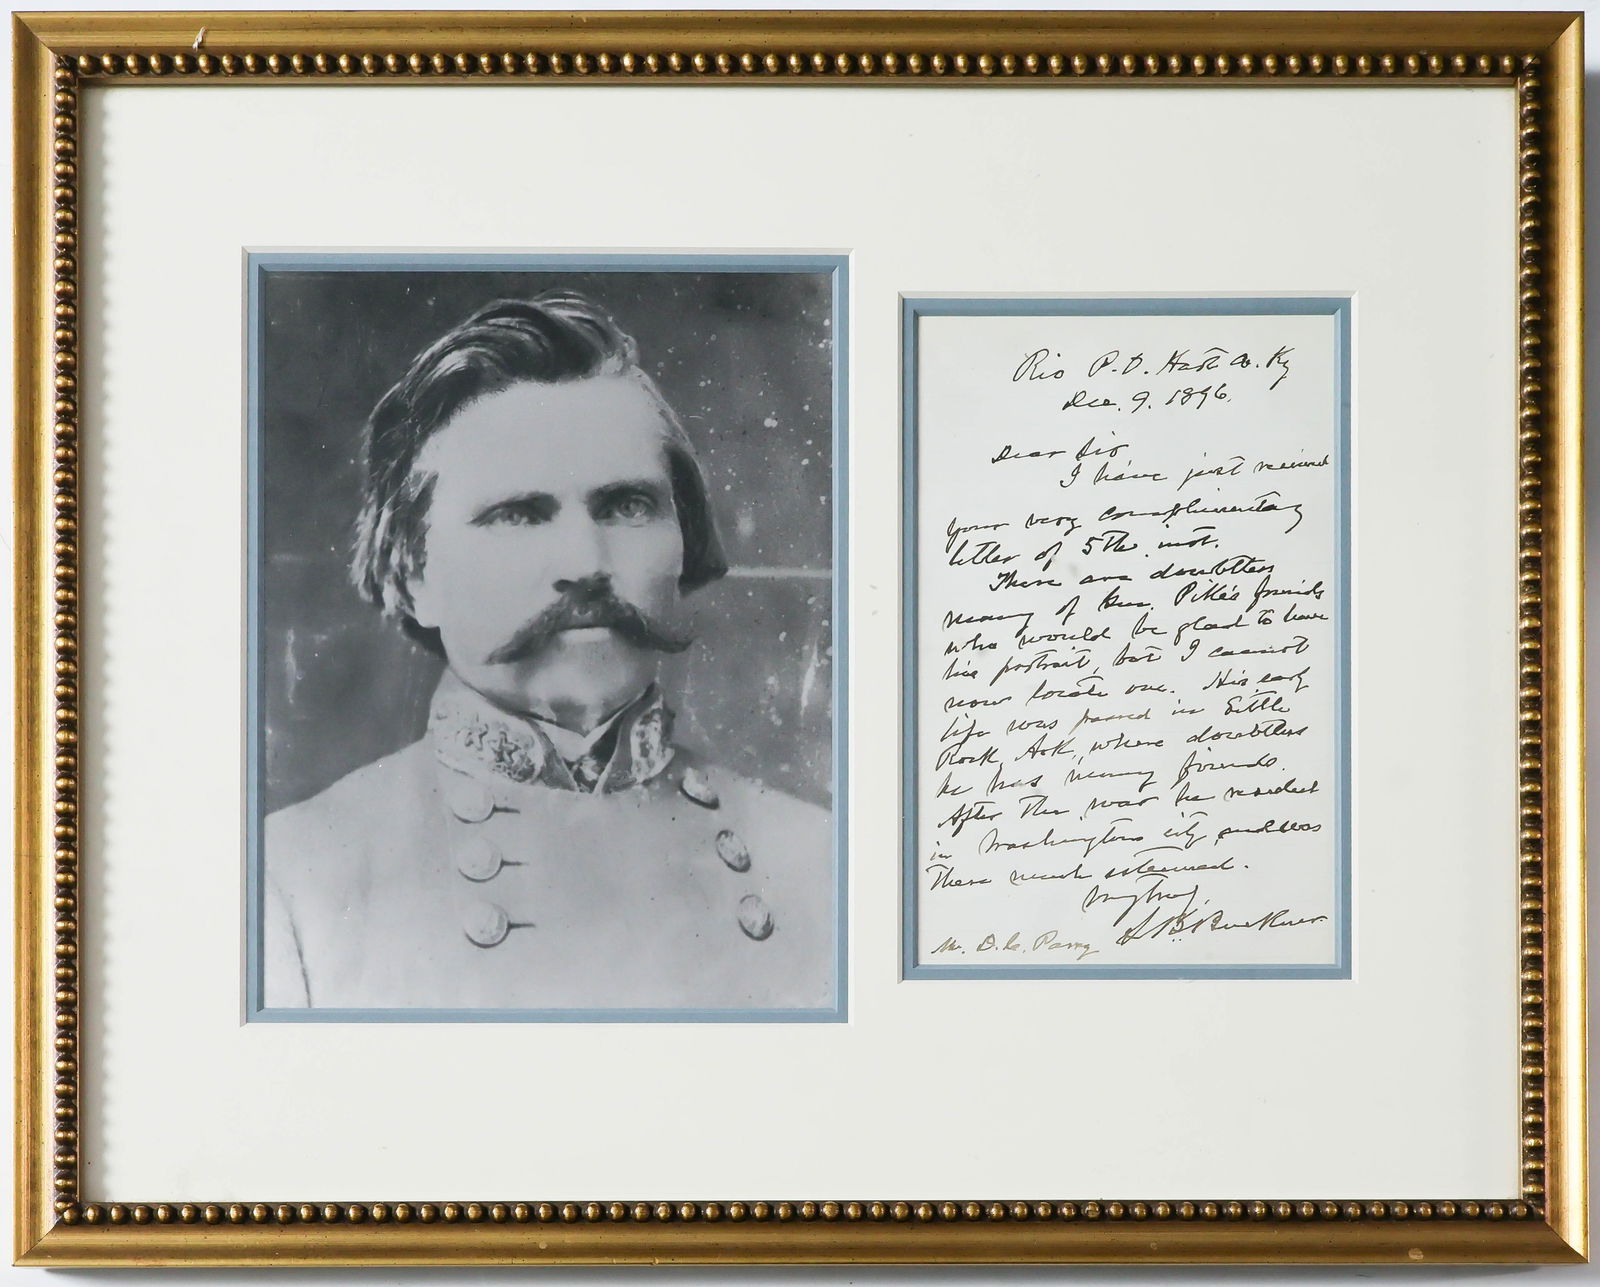 Rio P.O. Hart Co. Ky
Dec. 9. 1896.
Dear Sir
I have just received
your very complimentary
letter of 5th inst.
There are doubtless
many of Gen. Pike's friends
who would be glad to have
his portrait, but I cannot
now locate one. His early
life was passed in Little
Rock, Ark, where doubtless
he has many friends.
After the war he resided
in Washington city and was
there much esteemed.
Very truly,
S. B. Buckner.
Mr. D. C. Parry